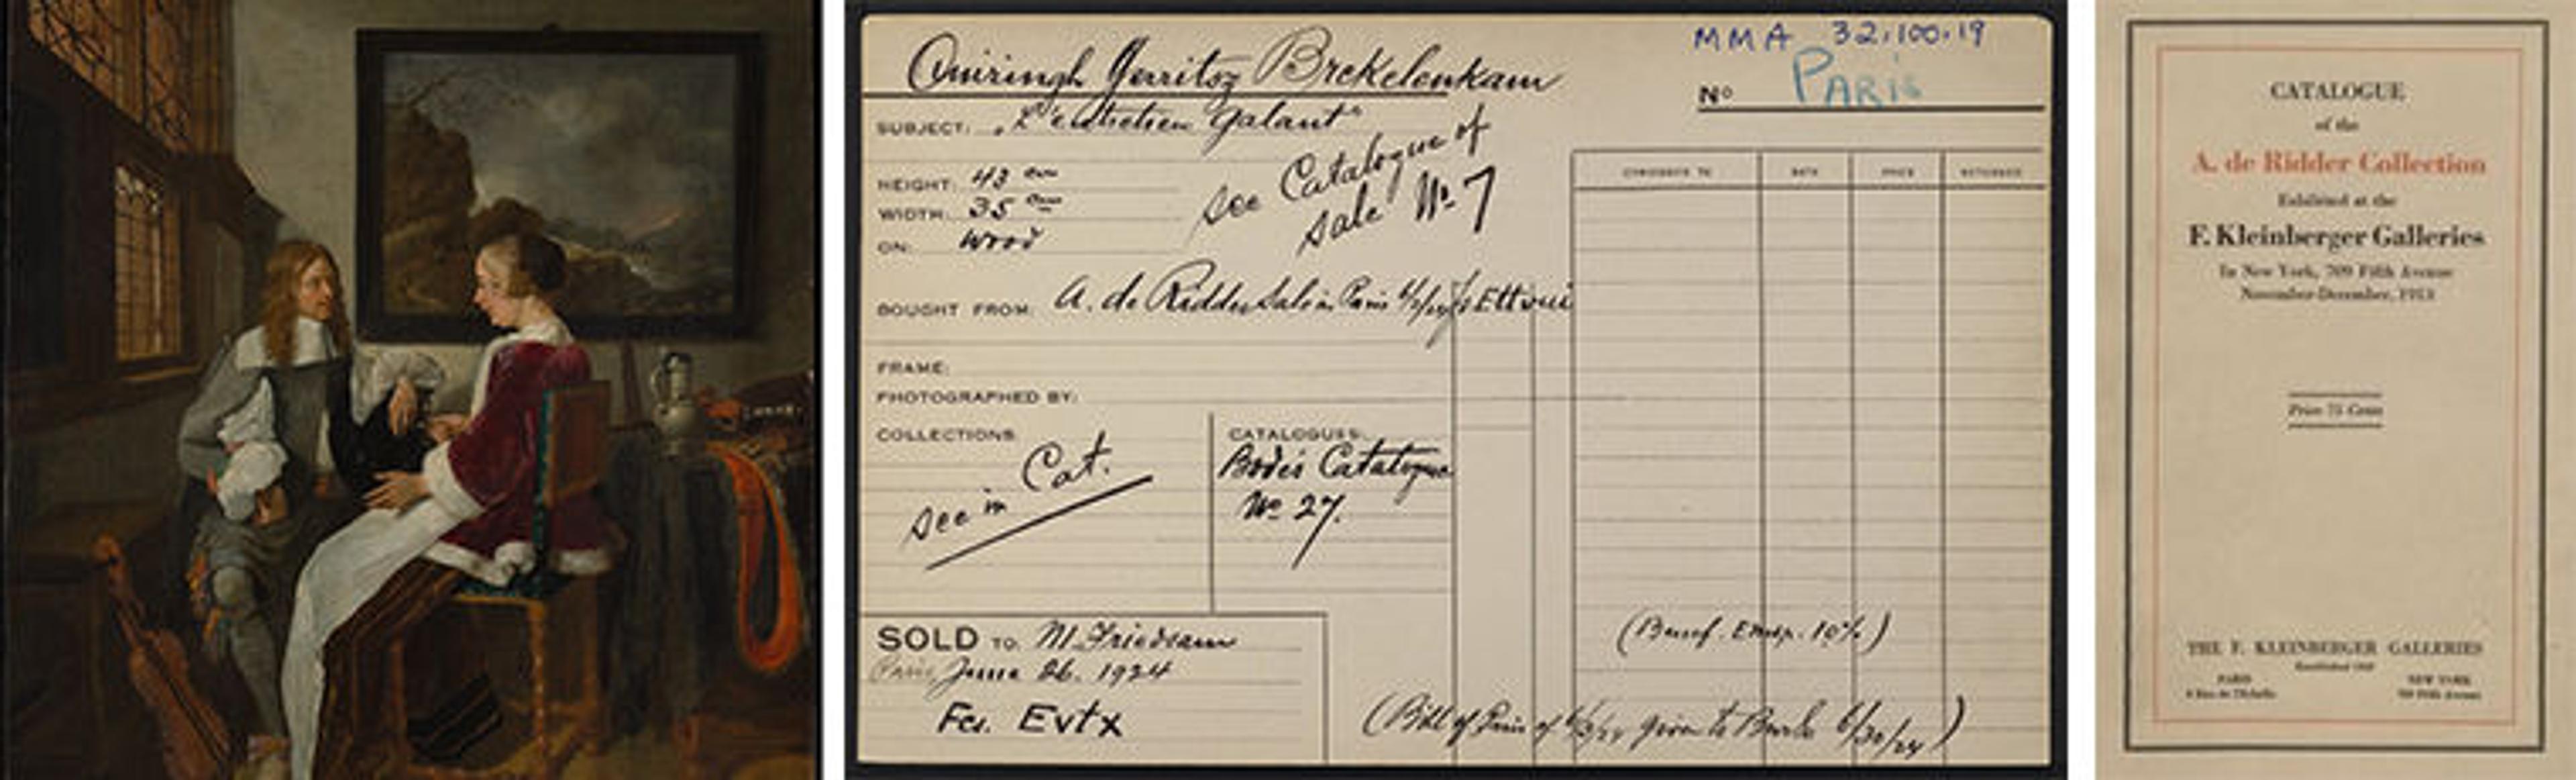 Quiringh Gerritsz Brekelenkam
MMA 32.100.19
No PARIS
SUBJECT: "L'entretien Galant"
HEIGHT: 43 cm
WIDTH: 35 cm
ON: wood
see Catalogue of
sale No 7
BOUGHT FROM: A. de Ridder Sale in Paris Ettoui
FRAME:
PHOTOGRAPHED BY:
COLLECTIONS
see in Cat.
CATALOGUES:
Bode's Catalogue
No 27.
DATE PRICE RETURNED
SOLD TO: M. Friedsam
Paris, June 26. 1924
Fcs. Evtx
(Benef. Emp. 10%)
(Bill of Paris of 6/3/24 given to 6/30/24)
CATALOGUE
of the
A. de Ridder Collection
Exhibited at the
F. Kleinberger Galleries
In New York, 709 Fifth Avenue
November-December, 1913
Price 75 Cents
THE F. KLEINBERGER GALLERIES
Established 1848
PARIS
9 Rue de l'Echelle
NEW YORK
709 Fifth Avenue